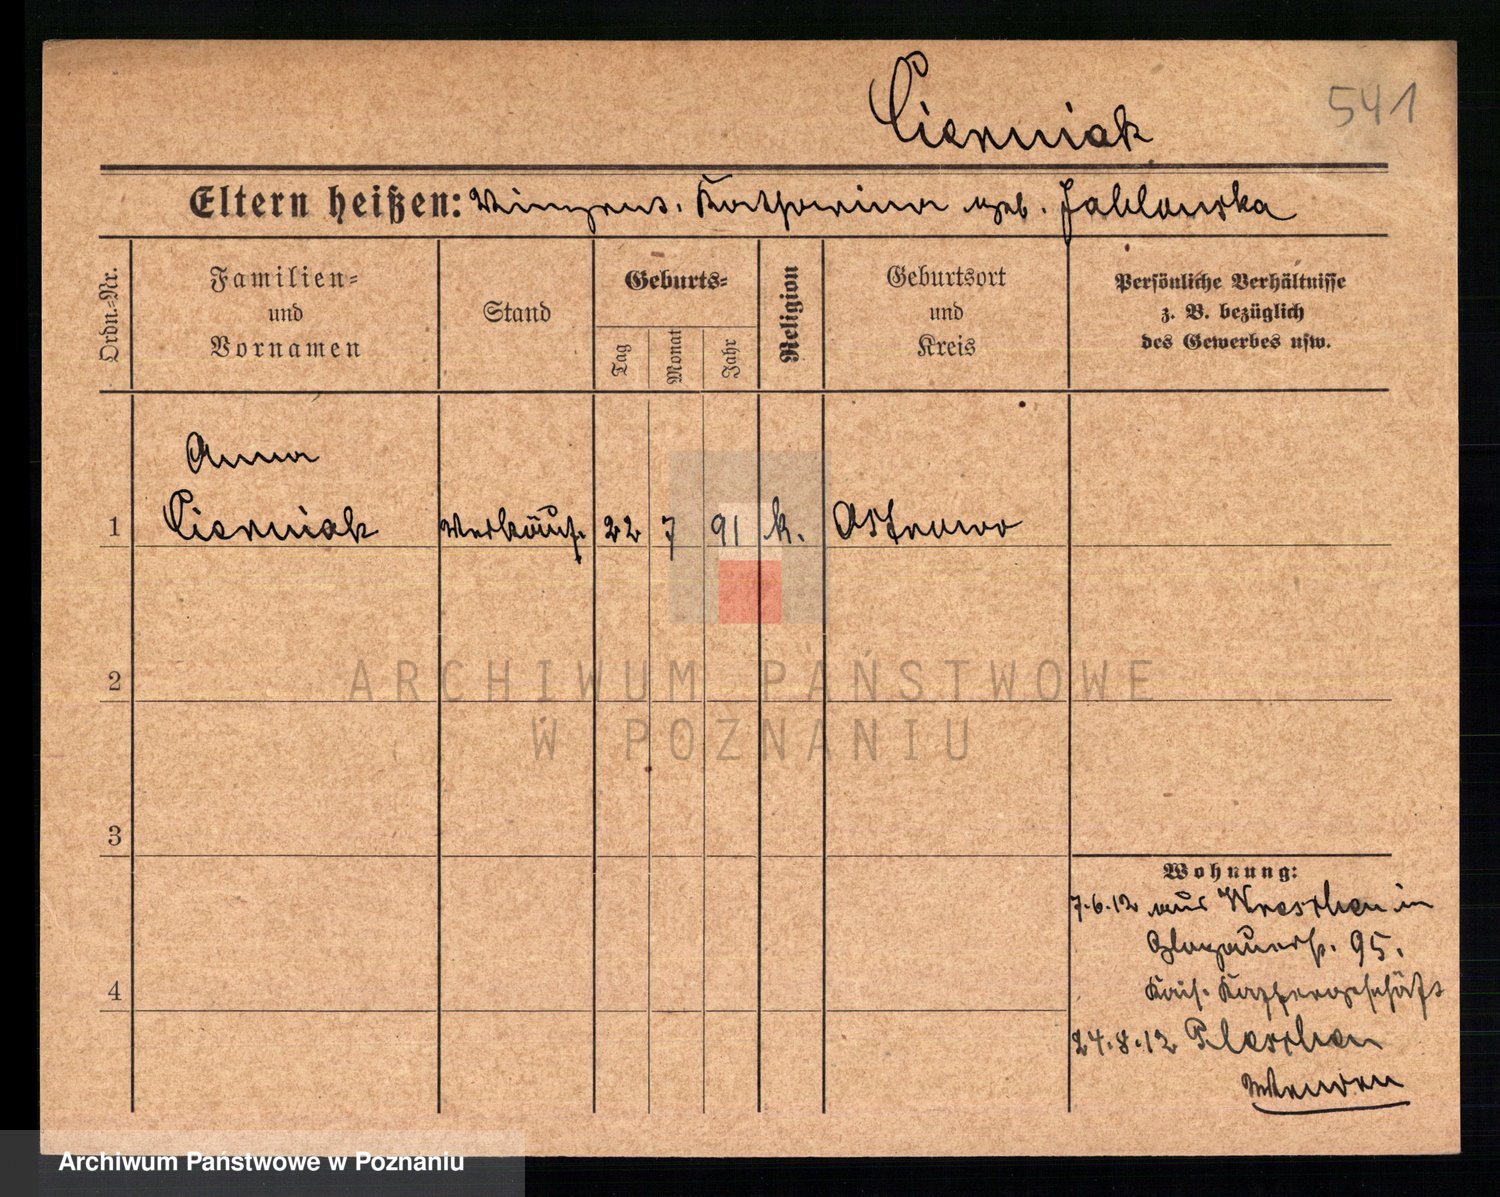 541
Cierniak
Eltern heißen: Vinzens. Katharina geb. Jablonska
Ordn.-Nr.
Familien-
und
Vornamen
Stand
Geburts-
Tag
Monat
Jahr
Religion
Geburtsort
und
Kreis
Persönliche Verhältnisse
z. B. bezüglich
des Gewerbes usw.
Anna
1 Cierniak Verkäuf. 22 7 91 k. Ostrowo
2
3
4
Wohnung:
7.6.12 aus Wreschen in
Glogauerstr. 95.
Kais. Kaffeegeschäft
24.8.12 Pleschen
ARCHIWUM PAŃSTWOWE
W POZNANIU
Archiwum Państwowe w Poznaniu